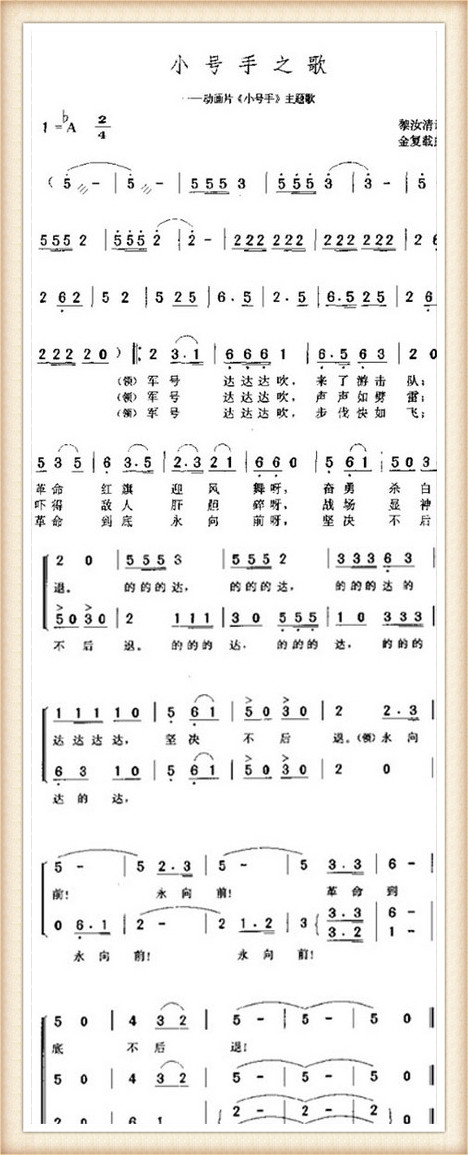 小号手之歌
——动画片《小号手》主题歌
1=♭A 2/4
黎汝清
金复载
( 5 - | 5 - | 5553 | 5553 | 3 - | 3 - | 5
5552 | 5552 | 2 - | 222 222 | 222 222 | 2
2 62 | 5 2 | 5 25 | 6·5 | 2· | 6·5 25 |
222 20 ) |: 2 3·1 | 666 1 | 6·5 35 | 2 0
(领) 军号 达达达吹, 来了游击队;
(领) 军号 达达达吹, 声声如劈雷;
(领) 军号 达达达吹, 步伐快如飞;
5 35 | 6 3·5 | 2·3 21 | 66 0 | 5 61 |
革命 红旗 迎风 舞呀, 奋勇 杀白
吓得 敌人 肝胆 碎呀, 战场 显神
革命 到底 永向 前呀, 坚决 不后
2 0 | 555 3 | 555 2 | 333 63 |
退。 的的的达, 的的的达, 的的的达的
50 30 | 2 111 | 30 555 | 10 333
不后 退。 的的的 达, 的的的 达, 的的的
111 10 | 5 61 | 50 30 | 2 2·3
达达达达, 坚决 不后 退。(领) 永向
63 10 | 5 61 | 50 30 | 2 0
达的达,
5 - | 5 2·3 | 5 - | 5 3·3 | 6 -
前! 永向 前! 革命 到
0 6·1 | 2 - | 2 1·2 | 3 3·3 | 6 -
3·2 | 1 -
永向 前! 永向 前!
5 0 | 4 32 | 5 - | 5 - | 5 0
底 不后 退!
5 0 | 4 32 | 5 - | 5 - | 5 0
2 0 | 6 61 | 2 - | 2 - | 2 0